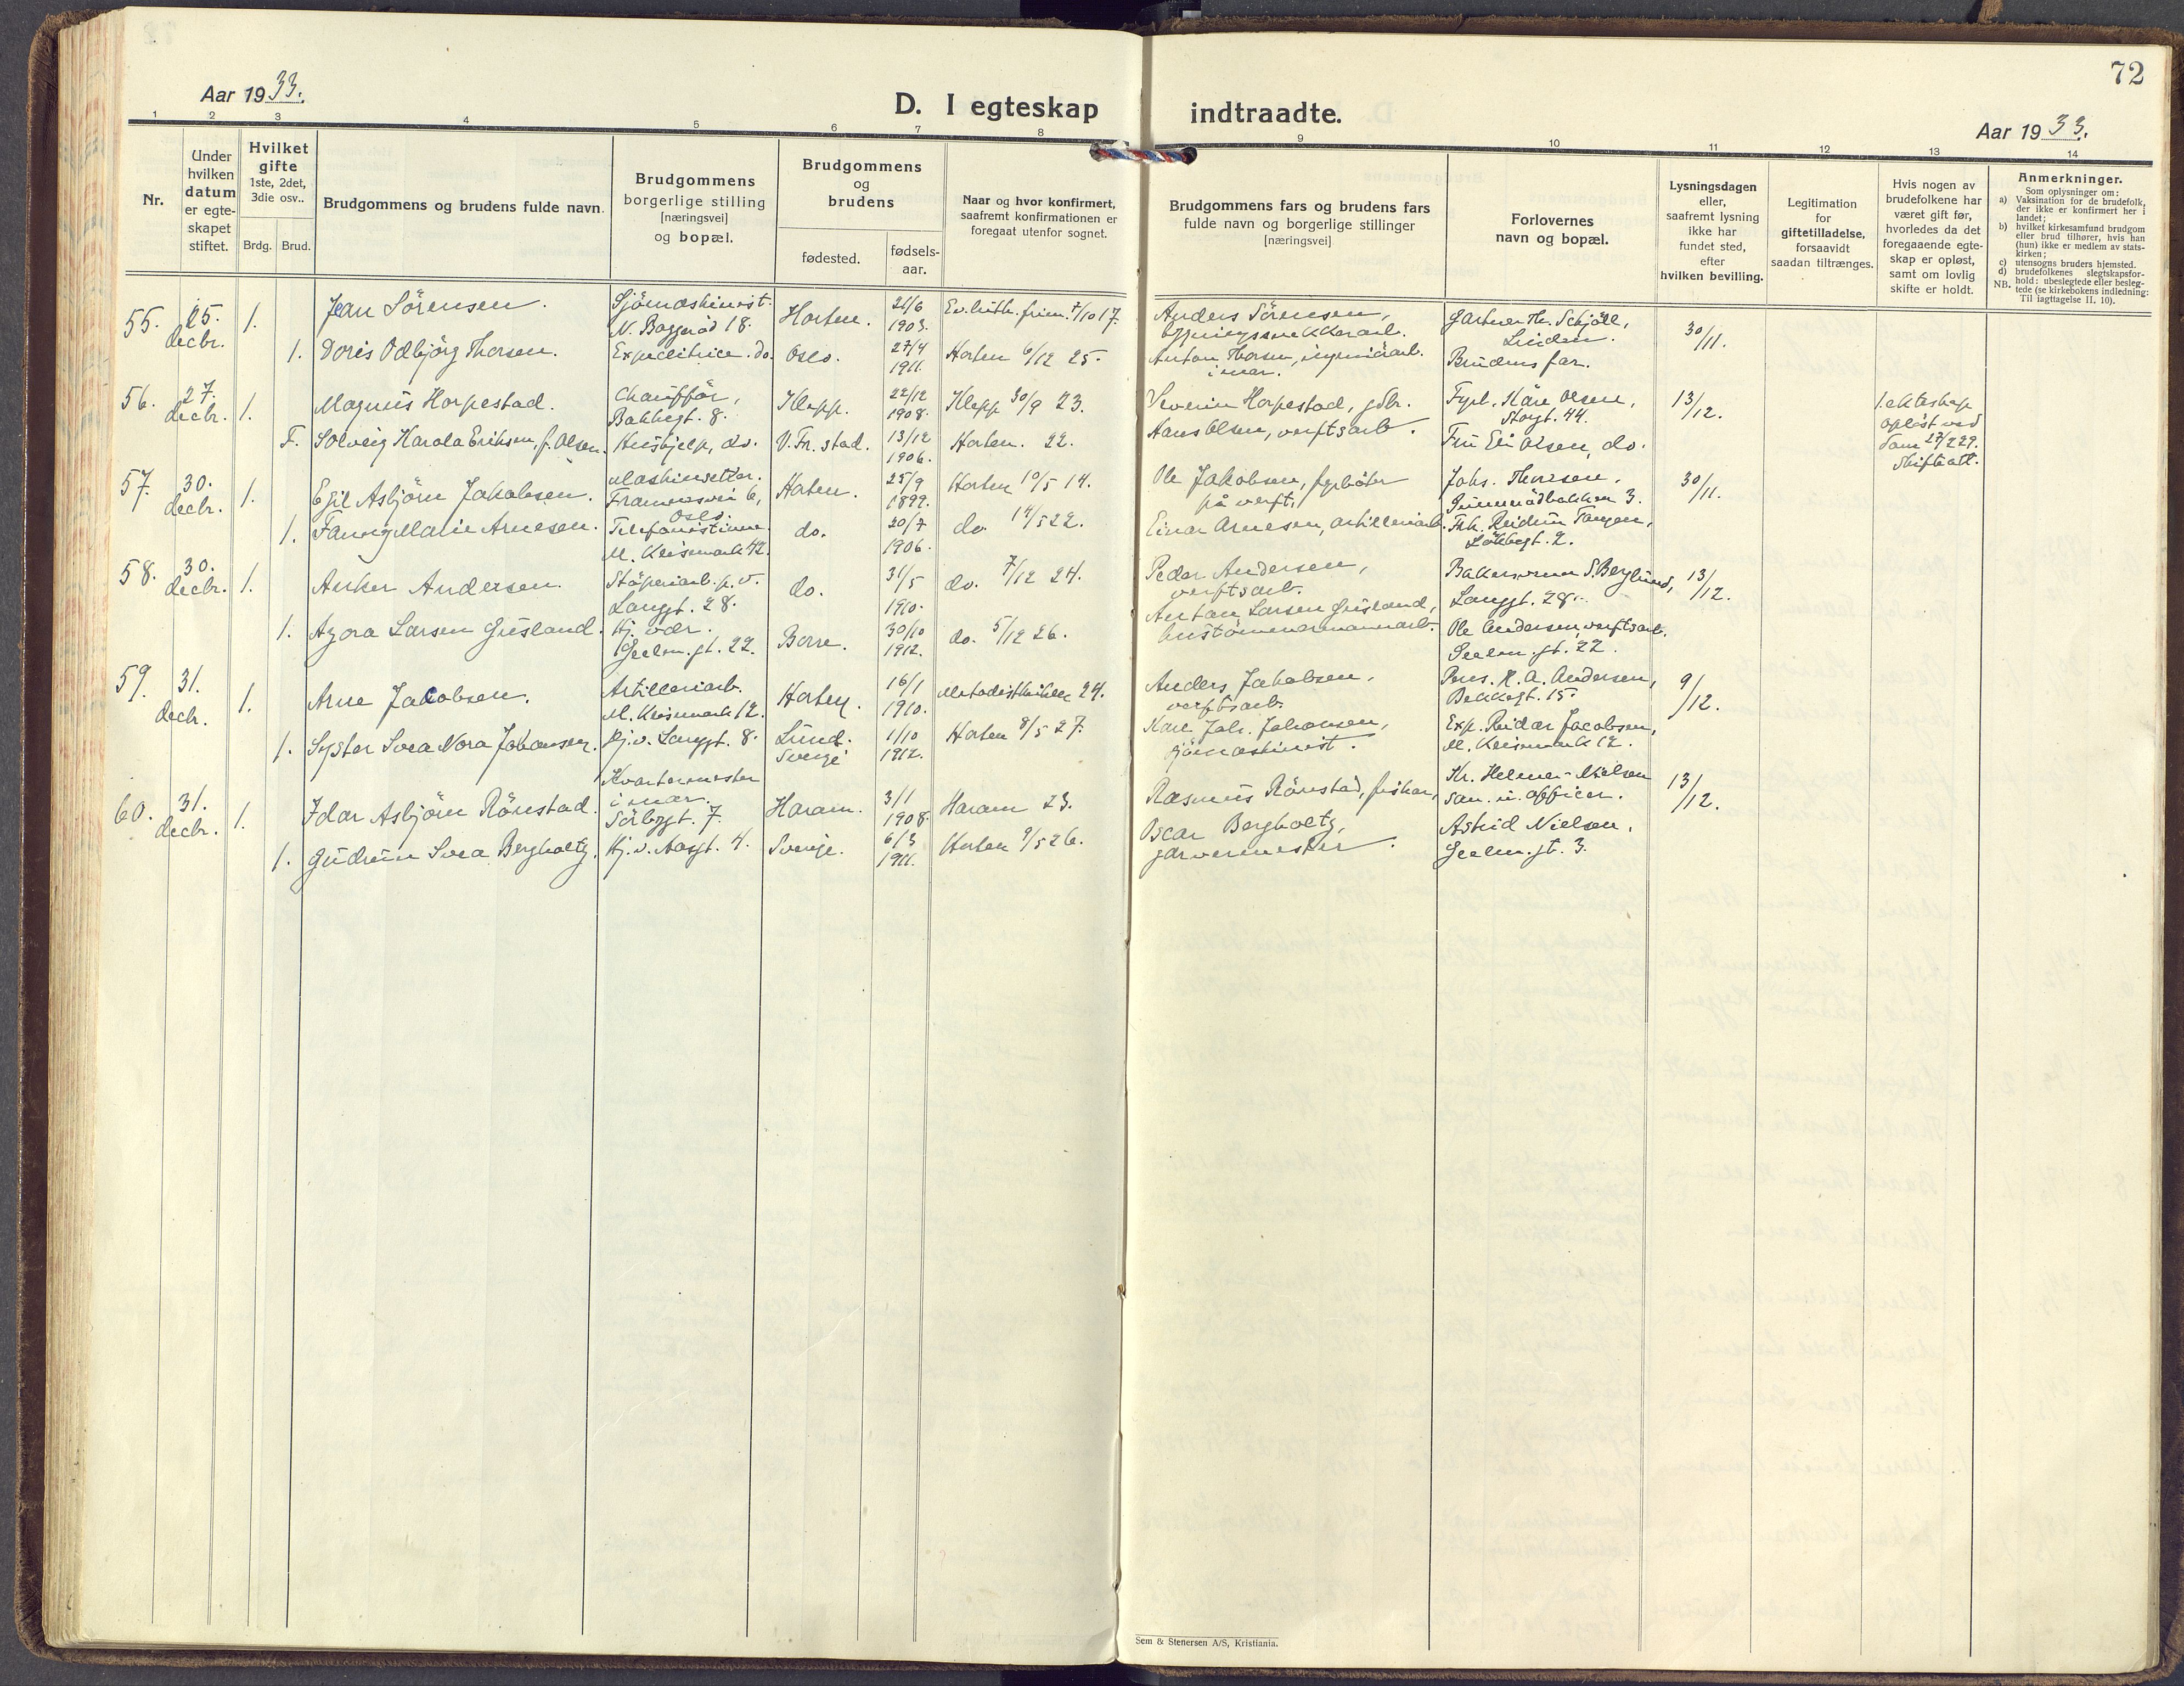 72
Aar 1933.
D. I egteskap indtraadte.
Aar 1933.
1 2 3 4 5 6 7 8 9 10 11 12 13 14
Nr.
Under hvilken datum er egte-skapet stiftet.
Hvilket gifte 1ste, 2det, 3die osv..
Brdg. Brud.
Brudgommens og brudens fulde navn.
Brudgommens borgerlige stilling [næringsvei] og bopæl.
Brudgommens og brudens
fødested. fødsels-aar.
Naar og hvor konfirmert, saafremt konfirmationen er foregaat utenfor sognet.
Brudgommens fars og brudens fars fulde navn og borgerlige stillinger [næringsvei]
Forlovernes navn og bopæl.
Lysningsdagen eller, saafremt lysning ikke har fundet sted, efter hvilken bevilling.
Legitimation for giftetilladelse, forsaavidt saadan tiltrænges.
Hvis nogen av brudefolkene har været gift før, hvorledes da det foregaaende egte-skap er opløst, samt om lovlig skifte er holdt.
Anmerkninger.
Som oplysninger om:
a) Vaksination for de brudefolk, der ikke er konfirmert her i landet;
b) hvilket kirkesamfund brudgom eller brud tilhører, hvis han (hun) ikke er medlem av stats-kirken;
c) utensogns bruders hjemsted.
d) brudefolkenes slegtskapsfor-hold: ubeslegtede eller besleg-
NB. tede (se kirkebokens indledning: Til iagttagelse II. 10).
55. 25. decbr. 1. Jean Sörensen. Sjömaskinist. N. Baggerød 18. Horten. 24/6 1903. Ev. luth. frim. 7/10 17. Anders Sörensen, Gartner Th. Schjöll, Linden. 30/11.
1. Doris Odbjörg Thorsen. Expeditrice. do. Oslo. 27/4 1911. Horten 6/12 25. Anton Thorsen, i mar. Brudens far.
56. 27. decbr. 1. Magnus Horpestad. Chaufför, Bakkegt. 8. Klepp. 22/12 1908. Klepp 30/9 23. Severin Horpestad, gdbr. Kåre Olsen, Storgt. 44. 13/12. 1. ekteskap opløst ved dom 27/2 29. Skifteatt.
F. Solveig Karola Eriksen, f. Olsen. Hushjelp, do. V. Fr. stad. 13/12 1906. Horten. 22. Hans Olsen, verftsarb. Fru Olsen, do.
57. 30. decbr. 1. Egil Asbjörn Jakobsen. Maskinsetter. 6, Oslo. Horten. 25/9 1899. Horten 10/5 14. Ole Jakobsen, fyrbøter på verft, Johs. Thoresen, 3. 30/11.
1. Fanny Marie Arnesen. Telefonistinne. M. Keisemark 42. do. 20/7 1906. do. 14/5 22. Einar Arnesen, artilleriarb. Frk. Reidun Tangen, Løkkegt. 2.
58. 30. decbr. 1. Anker Andersen. Støperiarb. p. v. Langgt. 28. do. 31/5 1910. do. 7/12 24. Peder Andersen, verftsarb. Bakersvenn S. Berglund, Langgt. 28. 13/12.
1. Agora Larsen Gusland. Hj. vær. Seelm. gt. 22. Borre. 30/10 1912. do. 5/12 26. Anton Larsen Gusland, Ole Andersen, verftsarb. Seelm. gt. 22.
59. 31. decb. 1. Arne Jacobsen. Artilleriarb. M. Keisemark 12. Horten. 16/1 1910. Metodistkirken 24. Anders Jakobsen, verftsarb. Pens. H. A. Andersen, Bekkegt. 15. 9/12.
1. Syster Svea Nora Johansen. Hj. v. Langgt. 8. Lund. Sverge. 1/10 1912. Horten 8/5 27. Karl Joh. Johansen, sjömaskinist. Exp. Reidar Jacobsen, M. Keisemark 12.
60. 31. decbr. 1. Idar Asbjörn Rönstad. Kvartermester i mar. Sörbygt. 7. Haram. 3/1 1908. Haram 23. Rasmus Rönstad, fisker, Kr. Helmer-Nielsen san. u. officer. 13/12.
1. Gudrun Svea Bergholtz. Hj. v. Aasgt. 4. Sverige. 6/3 1911. Horten 9/5 26. Oscar Bergholtz, garvermester. Astrid Nielsen, Seelm. gt. 3.
Sem & Stenersen A/S, Kristiania.